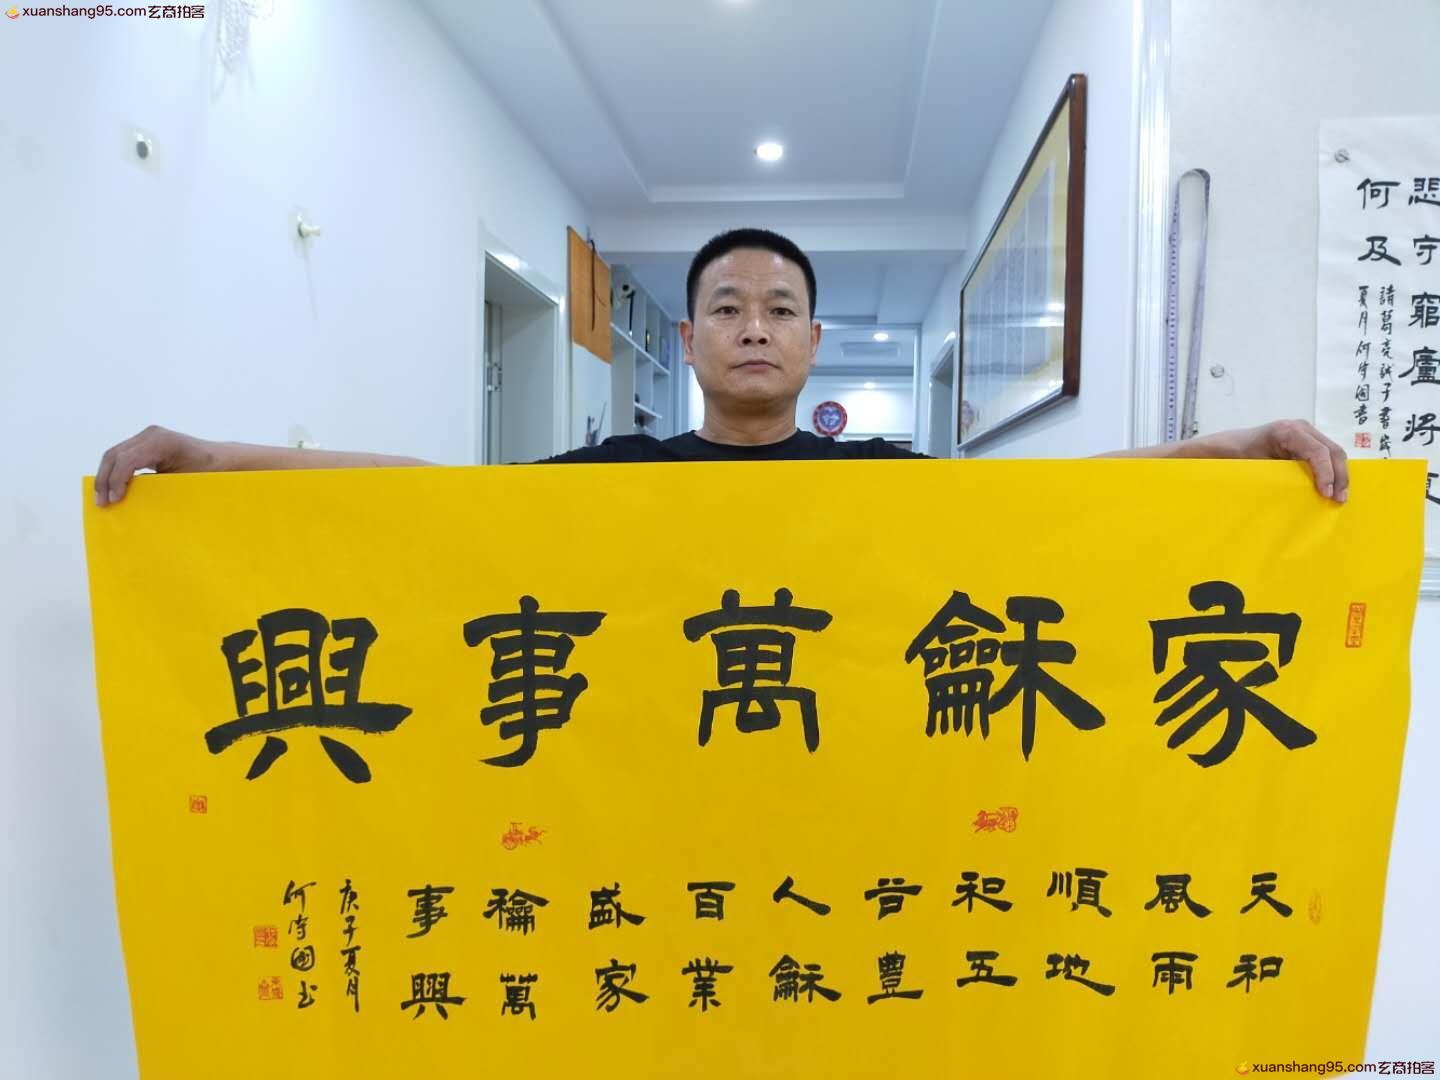 xuanshang95.com玄商拍客
家龢萬事興
天和
風雨
順地
和五
谷豐
人龢
百業
盛家
龢萬
事興
庚子夏月
何守國书
悲守窮廬將復
何及
諸葛亮誡子書
夏月何守國書
xuanshang95.com玄商拍客